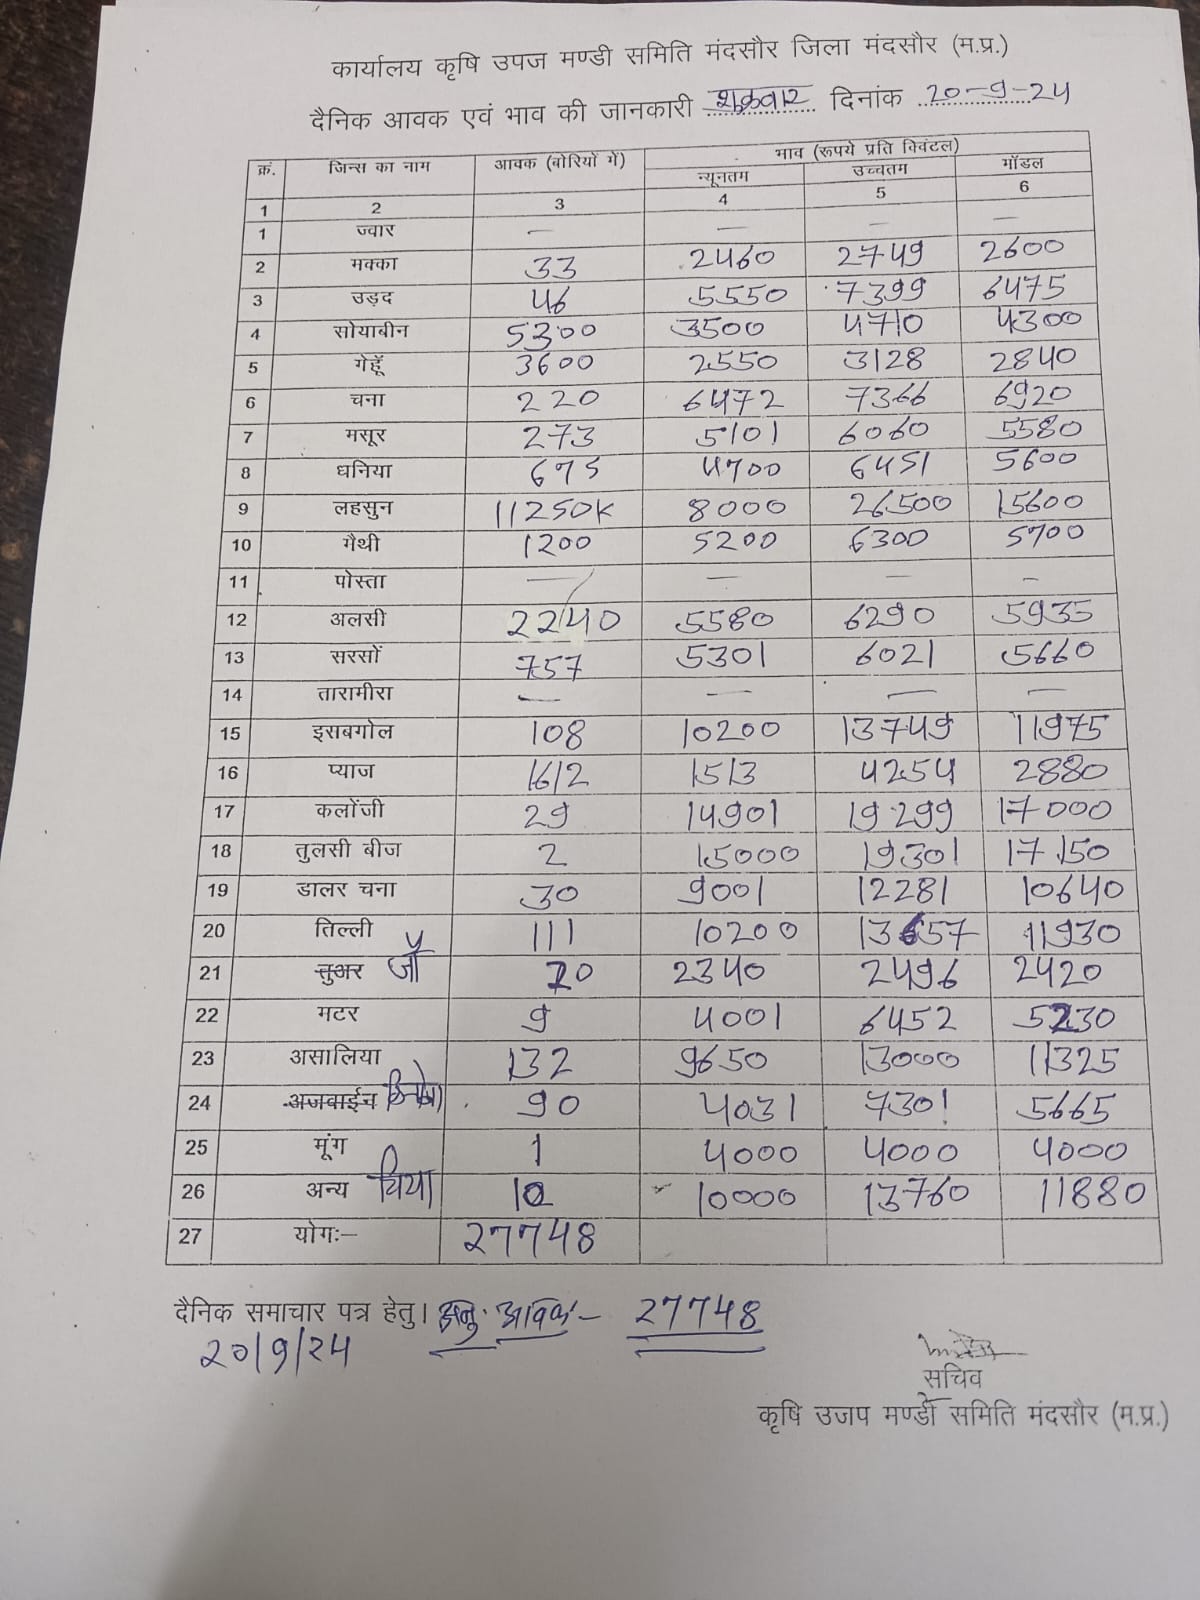 कार्यालय कृषि उपज मण्डी समिति मंदसौर जिला मंदसौर (म.प्र.)
दैनिक आवक एवं भाव की जानकारी शुक्रवार दिनांक 20-9-24
क्रं. जिन्स का नाम आवक (बोरियों में) भाव (रूपये प्रति क्विंटल)
न्यूनतम उच्चतम मॉडल
1 2 3 4 5 6
1 ज्वार — — — —
2 मक्का 33 2460 2749 2600
3 उड़द 46 5550 7399 6475
4 सोयाबीन 5300 3500 4710 4300
5 गेहूॅ 3600 2550 3128 2840
6 चना 220 6472 7366 6920
7 मसूर 273 5101 6060 5580
8 धनिया 675 4700 6451 5600
9 लहसुन 11250K 8000 26500 15600
10 मैथी 1200 5200 6300 5700
11 पोस्ता — — — —
12 अलसी 2240 5580 6290 5935
13 सरसों 757 5301 6021 5660
14 तारामीरा — — — —
15 इसबगोल 108 10200 13749 11975
16 प्याज 1612 1513 4254 2880
17 कलोंजी 29 14901 19299 17000
18 तुलसी बीज 2 15000 19301 17150
19 डालर चना 30 9001 12281 10640
20 तिल्ली 111 10200 13657 11930
21 तुअर जौ 20 2340 2496 2420
22 मटर 9 4001 6452 5230
23 असालिया 132 9650 13000 11325
24 अजवाईन 90 4031 7301 5665
25 मूंग 1 4000 4000 4000
26 अन्य चिया 10 10000 13760 11880
27 योगः– 27748
दैनिक समाचार पत्र हेतु। आवक – 27748
20/9/24
सचिव
कृषि उजप मण्डी समिति मंदसौर (म.प्र.)